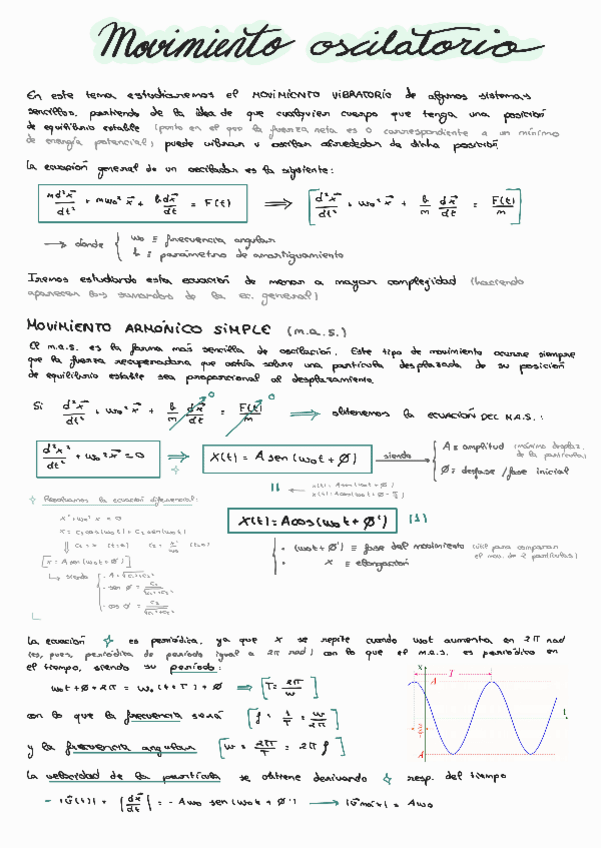 Movimiento oscilatorio
En este tema estudiaremos el MOVIMIENTO VIBRATORIO de algunos sistemas
sencillos, partiendo de la idea de que cualquier cuerpo que tenga una posición
de equilibrio estable (punto en el que la fuerza neta es 0 correspondiente a un mínimo
de energía potencial) puede vibrar u oscilar alrededor de dicha posición.
La ecuación general de un oscilador es la siguiente:
m d²x⃗/dt² + mω₀² x⃗ + b dx⃗/dt = F(t) ⟹ [d²x⃗/dt² + ω₀² x⃗ + b/m dx⃗/dt = F(t)/m]
→ donde { ω₀ ≡ frecuencia angular
b ≡ parámetro de amortiguamiento
Iremos estudiando esta ecuación de menor a mayor complejidad (haciendo
aparecer los sumandos de la ec. general)
MOVIMIENTO ARMÓNICO SIMPLE (m.a.s.)
El m.a.s. es la forma más sencilla de oscilación. Este tipo de movimiento ocurre siempre
que la fuerza recuperadora que actúa sobre una partícula desplazada de su posición
de equilibrio estable sea proporcional al desplazamiento.
Si d²x⃗/dt² + ω₀² x⃗ + b/m dx⃗/dt 0 = F(t)/m 0 ⟹ obtenemos la ECUACIÓN DEL M.A.S.:
d²x²/dt² + ω₀² x⃗ = 0 ⟹ x(t) = A sen(ω₀t + Ø) siendo → { A ≡ amplitud (máximo desplaz. de la partícula)
Ø ≡ desfase / fase inicial
Resolvamos la ecuación diferencial:
x(t) = A cos(ω₀t + Ø') (1)
· (ω₀t + Ø') ≡ fase del movimiento (útil para comparar el mov. de 2 partículas)
· x ≡ elongación
x = C₁ cos(ω₀t) + C₂ sen(ω₀t)
[x = A sen(ω₀t + Ø)]
↳ siendo
· A = √C₁² + C₂²
La ecuación ✧ es periódica, ya que x se repite cuando ω₀t aumenta en 2π rad
(es, pues, periódica de período igual a 2π rad) con lo que el m.a.s. es periódico en
el tiempo, siendo su período:
ω₀t + Ø + 2π = ω₀(t + T) + Ø ⟹ [T = 2π/ω]
con lo que la frecuencia será [f = 1/T = ω/2π]
y la frecuencia angular [ω = 2π/T = 2π f]
x
T
A
t
La velocidad de la partícula se obtiene derivando ✧ resp. del tiempo
- |v⃗(t)| = |dx⃗/dt| = -Aω₀ sen(ω₀t + Ø') → |v⃗máx| = Aω₀